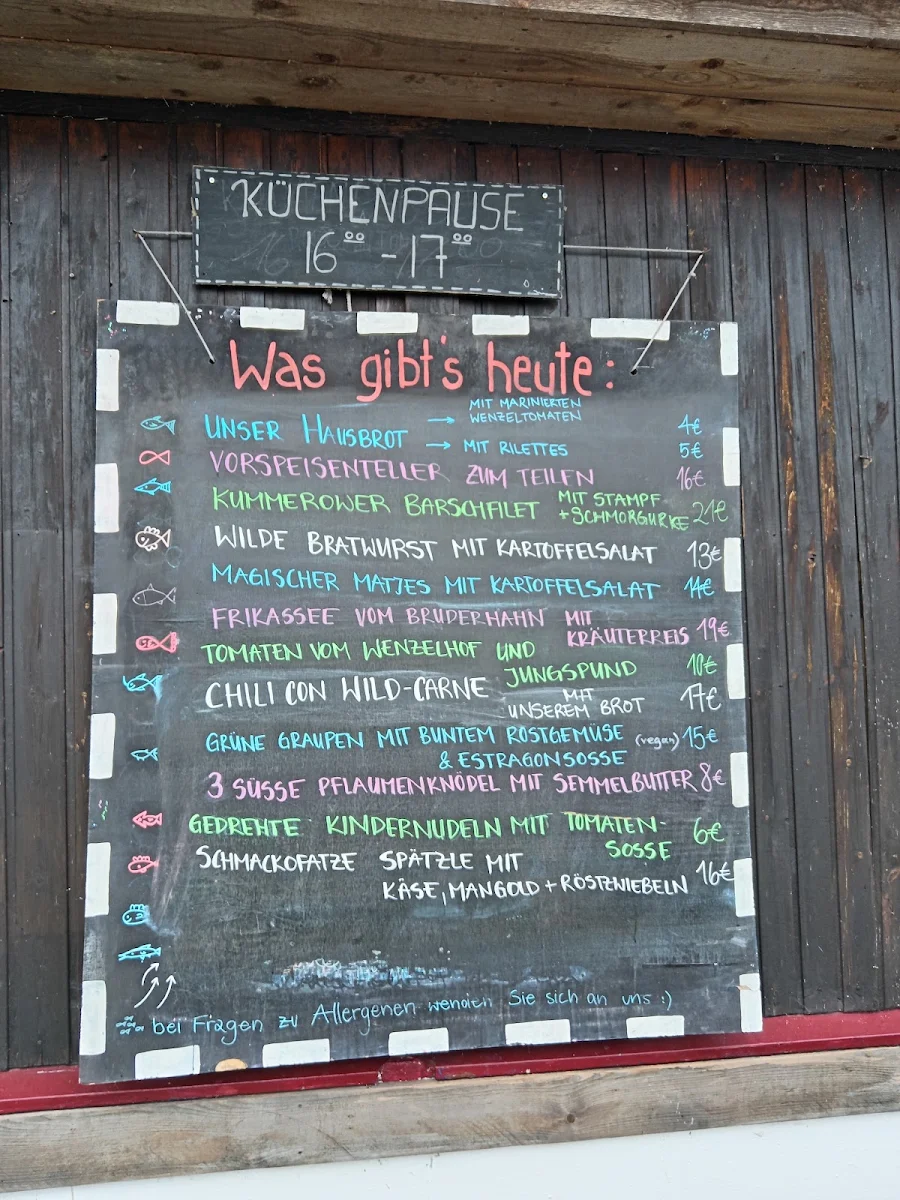 KÜCHENPAUSE
16⁰⁰ - 17⁰⁰
Was gibt's heute:
UNSER HAUSBROT → MIT MARINIERTEN
WENZELTOMATEN 4€
→ MIT RILETTES 5€
VORSPEISENTELLER ZUM TEILEN 16€
KUMMEROWER BARSCHFILET MIT STAMPF
+ SCHMORGURKE 21€
WILDE BRATWURST MIT KARTOFFELSALAT 13€
MAGISCHER MATJES MIT KARTOFFELSALAT 14€
FRIKASSEE VOM BRUDERHAHN MIT
KRÄUTERREIS 19€
TOMATEN VOM WENZELHOF UND
JUNGSPUND 10€
CHILI CON WILD-CARNE MIT
UNSEREM BROT 17€
GRÜNE GRAUPEN MIT BUNTEM RÖSTGEMÜSE (vegan) 15€
& ESTRAGONSOSSE
3 SÜSSE PFLAUMENKNÖDEL MIT SEMMELBUTTER 8€
GEDREHTE KINDERNUDELN MIT TOMATEN-
SOSSE 6€
SCHMACKOFATZE SPÄTZLE MIT
KÄSE, MANGOLD + RÖSTZWIEBELN 16€
bei Fragen zu Allergenen wenden Sie sich an uns :)